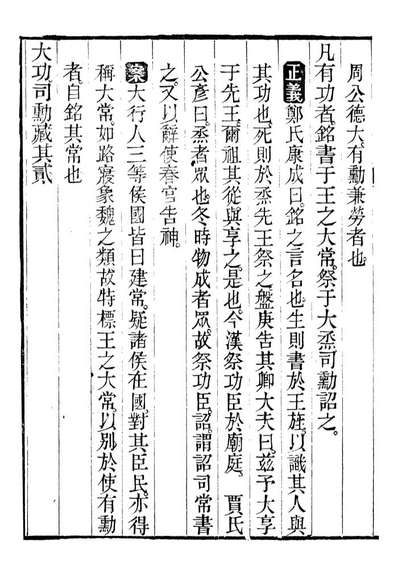 周公德大有勳兼勞者也
凡有功者銘書于王之大常祭于大烝司勳詔之
正義鄭氏康成曰銘之言名也生則書於王旌以識其人與
其功也死則於烝先王祭之盤庚告其卿大夫曰茲予大享
于先王爾祖其從與享之是也今漢祭功臣於廟庭 賈氏
公彥曰烝者眾也冬時物成者眾故祭功臣詔謂詔司常書
之又以辭使春官告神
案大行人三等侯國皆曰建常疑諸侯在國對其臣民亦得
稱大常如路寢象魏之類故特標王之大常以別於使有勳
者自銘其常也
大功司勳藏其貳